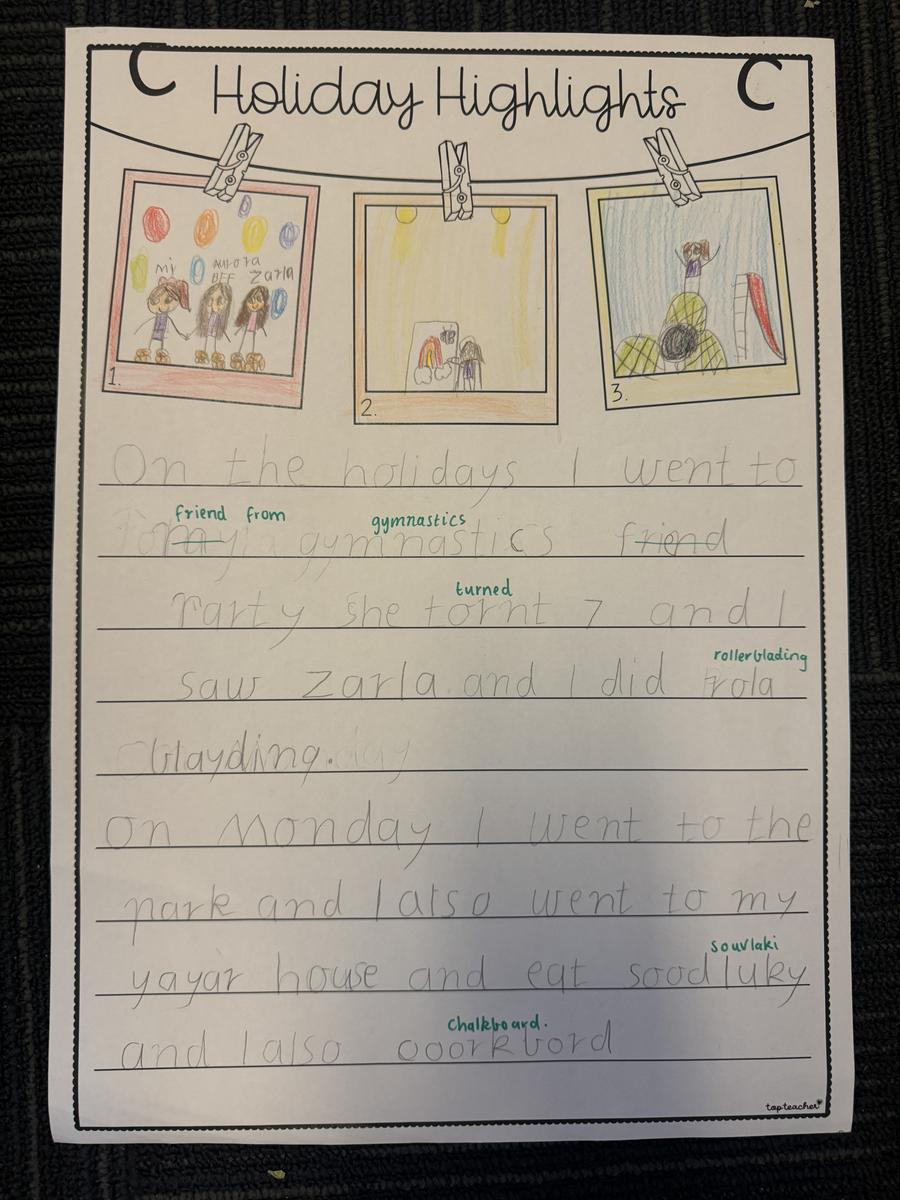 C Holiday Highlights C
Mi Aurora BFF Zarla
1.
2.
3.
On the holidays I went to
friend from gymnastics
my gymnastics friend
Party She tornt 7 and I
turned
saw Zarla and I did rola
rollerblading
blayding.
on Monday I went to the
park and I also went to my
yayar house and eat sood luky
souvlaki
and I also ooorkbord
Chalkboard.
topteacher